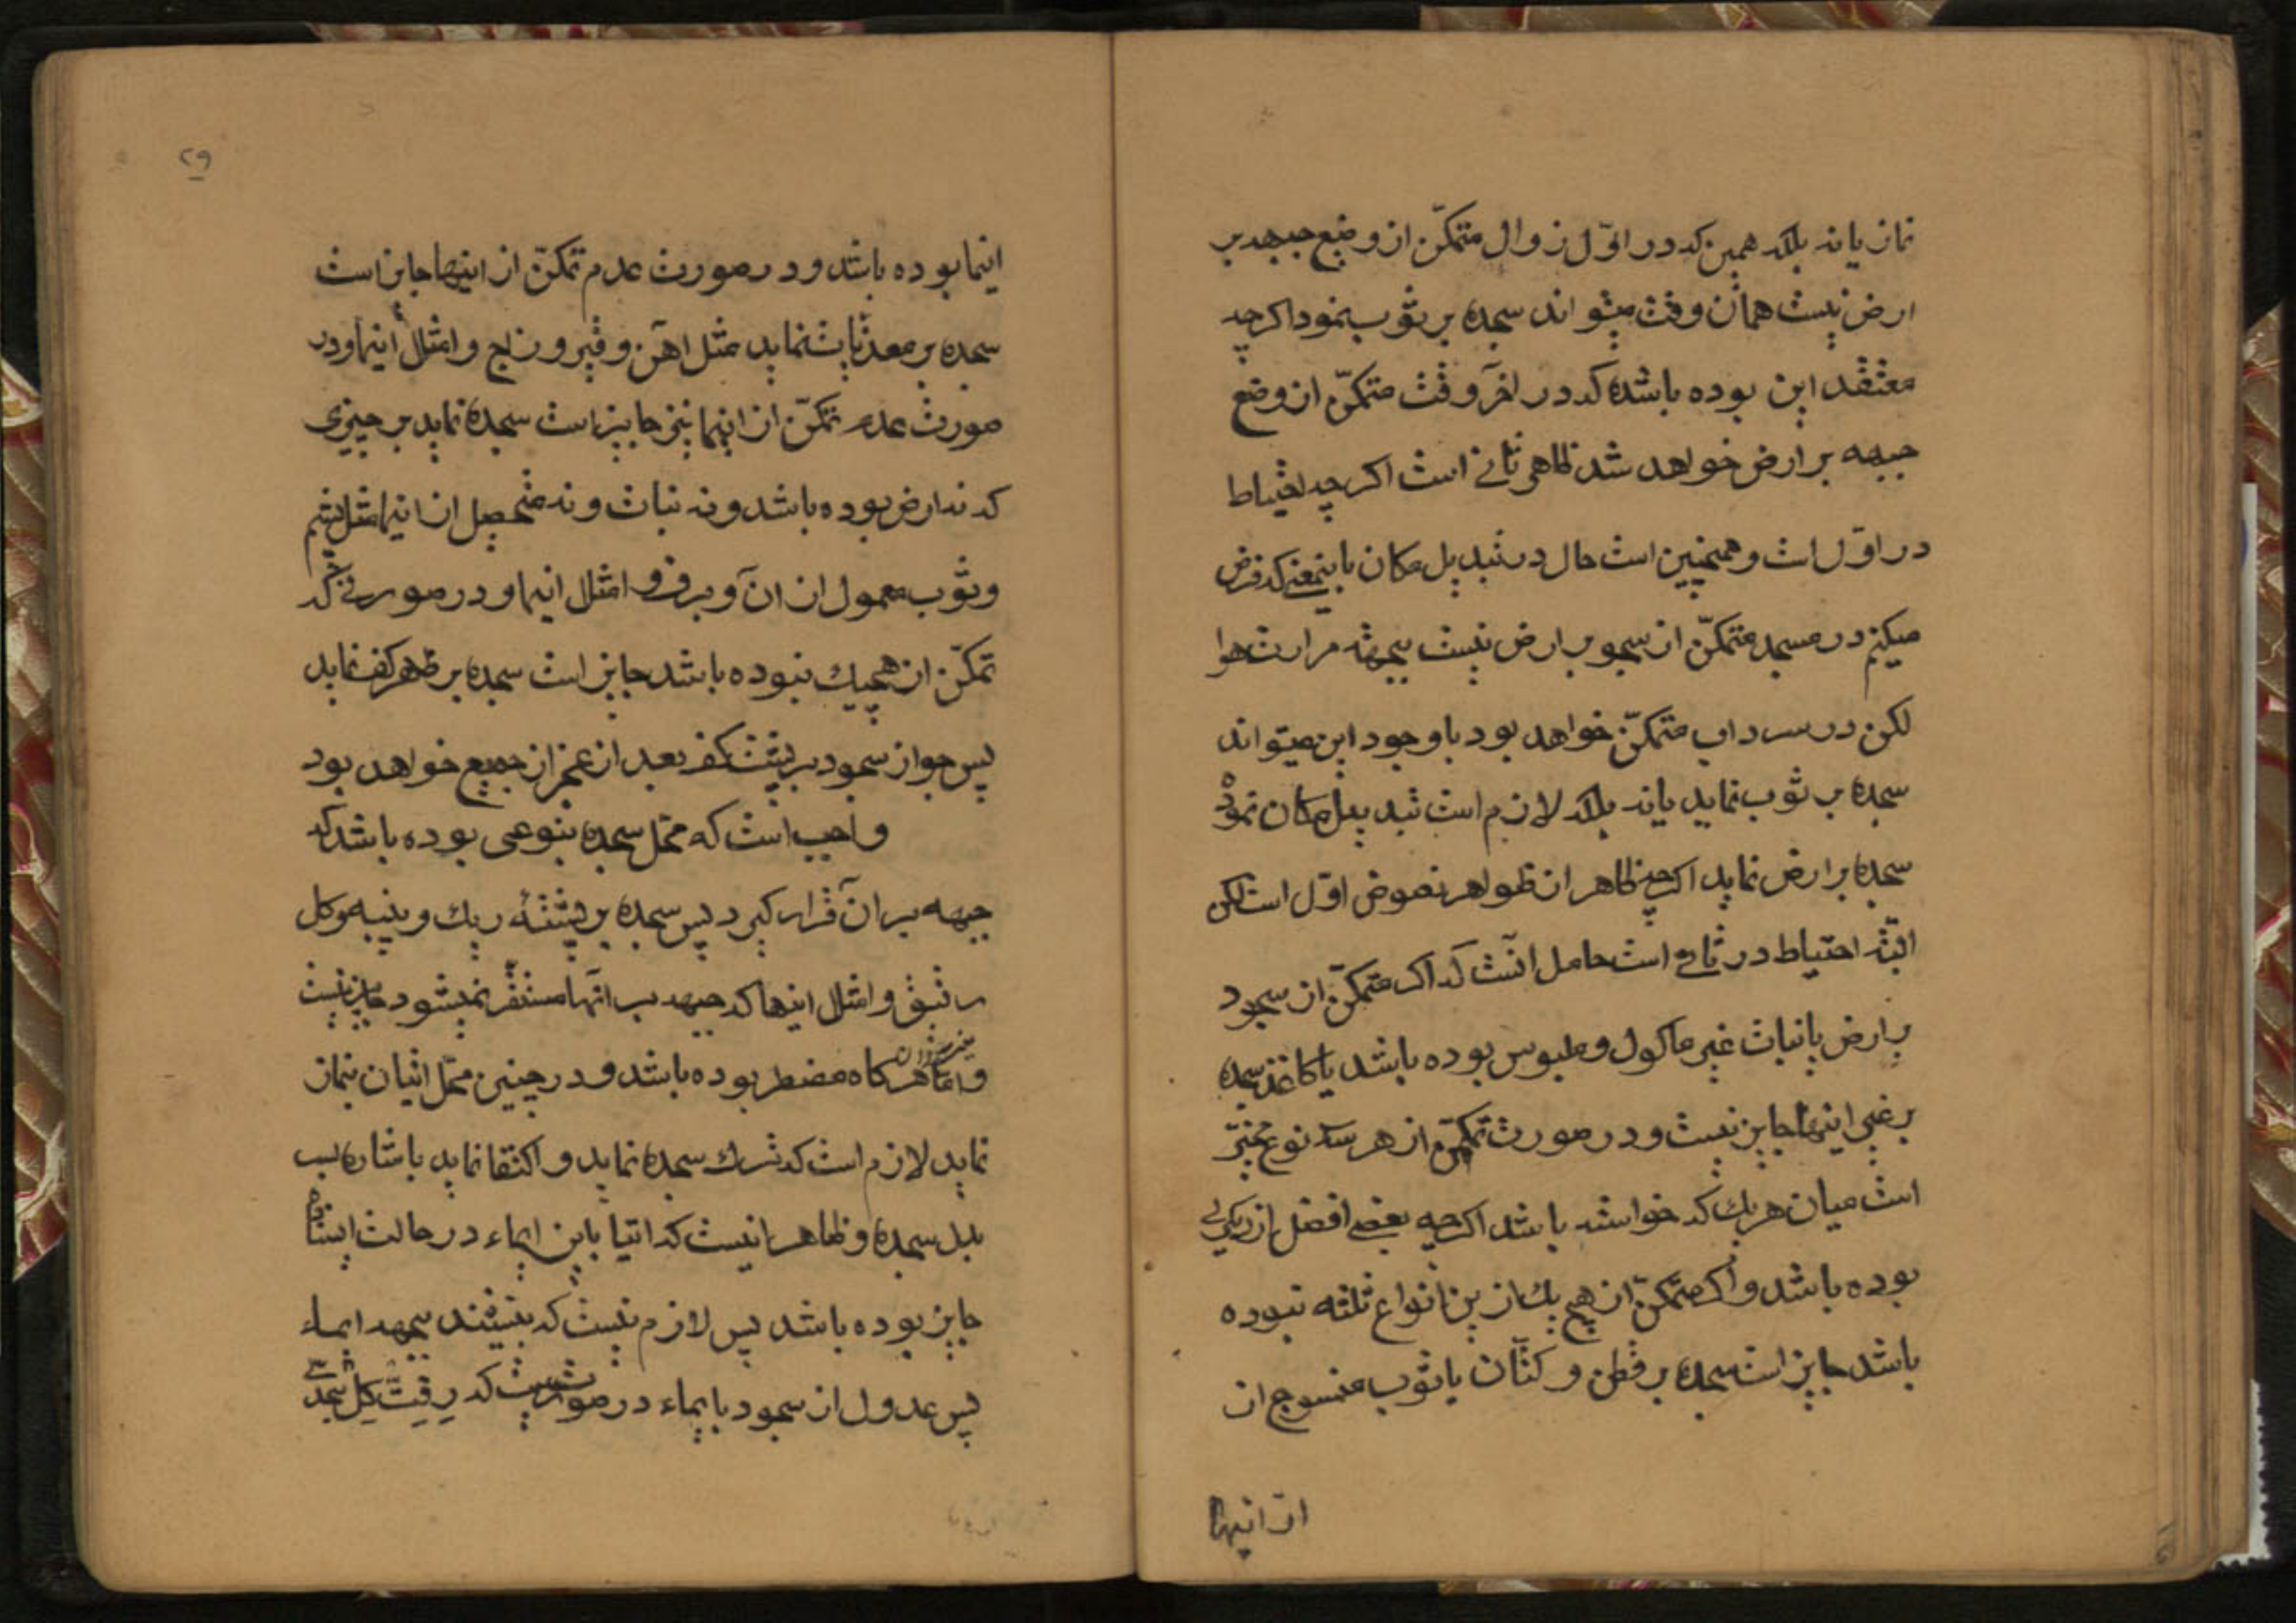 نماز یا نه بلکه همین که در اوّل زوال متمکّن از وضع جبهه بر
ارض نیست همان وقت میتواند سجده بر ثوب نمود اگرچه
معتقد این بوده باشد که در آخر وقت متمکّن از وضع
جبهه بر ارض خواهد شد ظاهر ثانی است اگرچه احتیاط
در اوّل است و همچنین است حال در تبدیل مکان باینمعنی که فرض
میکنم در مسجد متمکّن از سجود بر ارض نیست بجهة حرارت هوا
لکن در سرداب متمکّن خواهد بود با وجود این میتواند
سجده بر ثوب نماید یا نه بلکه لازم است تبدیل مکان نموده
سجده بر ارض نماید اگرچه ظاهر از ظواهر نصوص اوّل است لکن
البتّه احتیاط در ثانی است حاصل آنست که اگر متمکّن از سجود
بر ارض یا نبات غیر ماکول و ملبوس بوده باشد یا کاغذ سجده
بر غیر اینها جایز نیست و در صورت تمکّن از هر سه نوع مخیّر
است میان هر یک که خواسته باشد اگرچه بعضی افضل از دیگری
بوده باشد و اگر متمکّن از هیچ یک از این انواع ثلثه نبوده
باشد جایز است سجده بر قطن و کتّان یا ثوب منسوج از
از اینها
۲۹
اینها بوده باشد و در صورت عدم تمکّن از اینها جایز است
سجده بر معدنیات نماید مثل آهن و قیر و زاج و امثال اینها و در
صورت عدم تمکّن از اینها نیز جایز است سجده نماید بر چیزی
که نه ارض بوده باشد و نه نبات و نه متحصل از اینها مثل پشم
و ثوب معمول از آن و برف و امثال اینها و در صورتی که
تمکّن از هیچیک نبوده باشد جایز است سجده بر ظهر کف نماید
پس جواز سجود بر پشت کف بعد از عجز از جمیع خواهد بود
واجب است که محل سجده بنوعی بوده باشد که
جبهه بر آن قرار گیرد پس سجده بر پشته ریک و پنبه و کل
رقیق و امثال اینها که جبهه بر آنها مستقر نمیشود جایز نیست
و امّا هر گاه مضطر بوده باشد و در چنین محلّ اتیان بنماز
نماید لازم است که ترک سجده نماید و اکتفا نماید باشاره
بدل سجده و ظاهر اینست که اتیا باین ایماء در حالت ایستادن
جایز بوده باشد پس لازم نیست که بنشیند بجهه ایماء
پس عدول از سجود بایماء در صورتیست که رقیت کل بحدّی